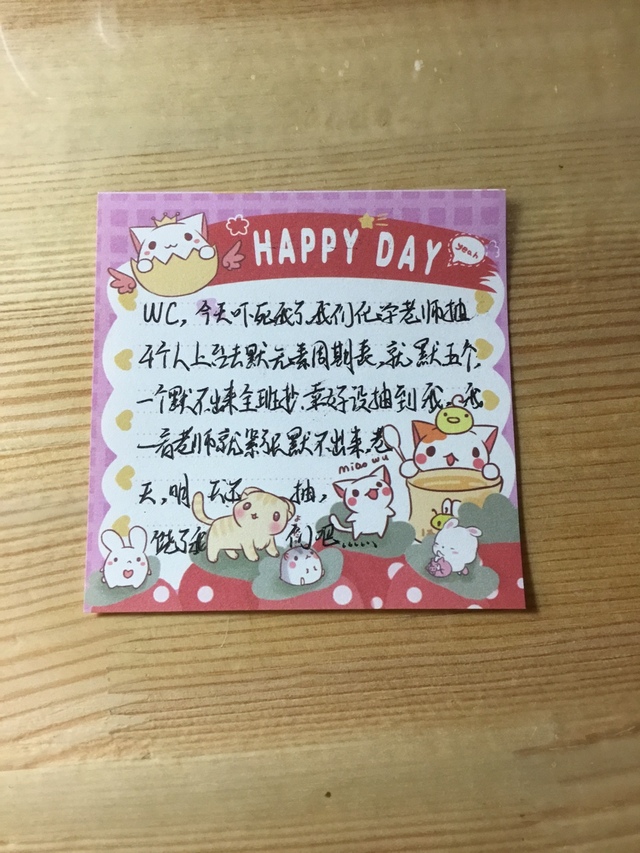 HAPPY DAY
yeah
WC,今天吓死我了,我们化学老师抽
4个人上台去默元素周期表,就默五个,
一个默不出来全班抄.幸好没抽到我,我
一看老师就紧张默不出来.老
miao wu
天,明天还抽,
饶了我们吧......